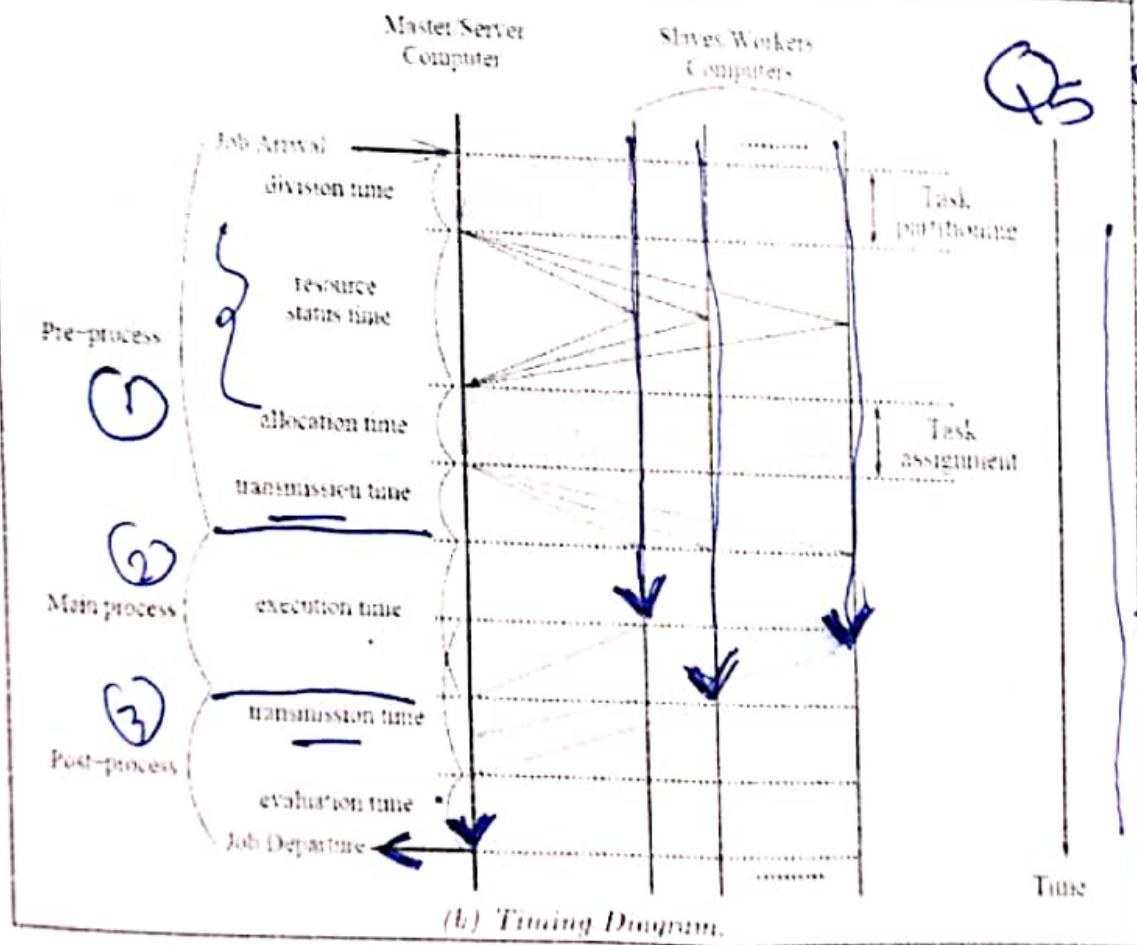 Master/Server
Computer
Slaves/Workers
Computers
Q5
Job Arrival
division time
Task
partitioning
resource
status time
Pre-process
1
allocation time
Task
assignment
transmission time
2
Main process
execution time
3
transmission time
Post-process
evaluation time
Job Departure
Time
(b) Timing Diagram.